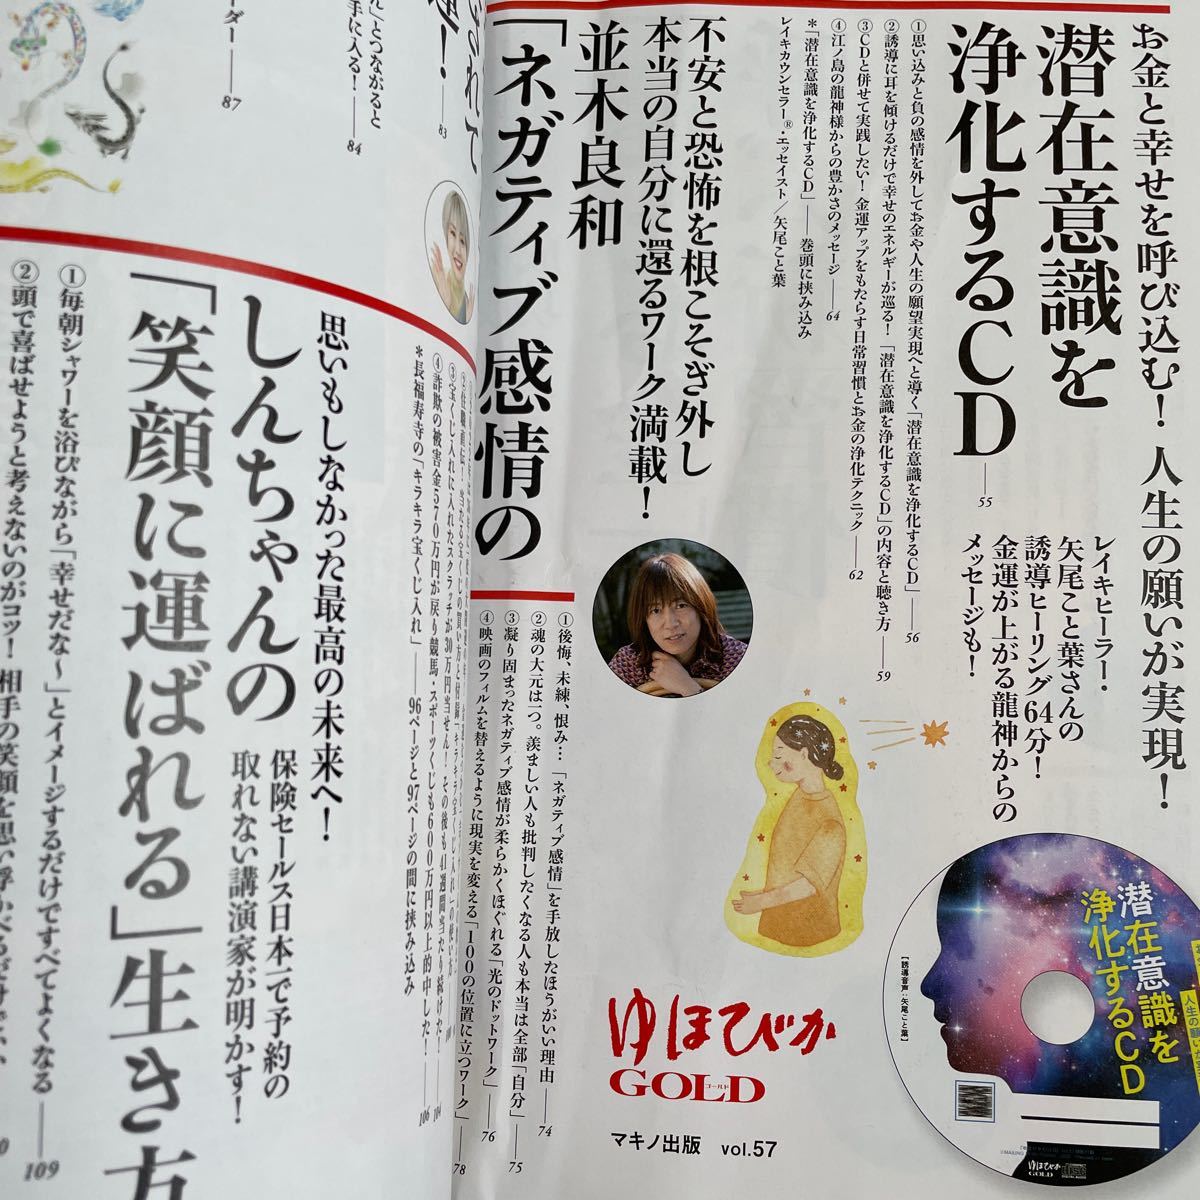 お金と幸せを呼び込む！人生の願いが実現！
潜在意識を
浄化するCD――55
レイキヒーラー・
矢尾こと葉さんの
誘導ヒーリング64分！
金運が上がる龍神からの
メッセージも！
①思い込みと負の感情を外してお金や人生の願望実現へと導く「潜在意識を浄化するCD」――56
②誘導に耳を傾けるだけで幸せのエネルギーが巡る！「潜在意識を浄化するCD」の内容と聴き方――59
③CDと併せて実践したい！金運アップをもたらす日常習慣とお金の浄化テクニック――62
④江ノ島の龍神様からの豊かさのメッセージ――64
＊「潜在意識を浄化するCD」――巻頭に挟み込み
レイキカウンセラー®・エッセイスト／矢尾こと葉
不安と恐怖を根こそぎ外し
本当の自分に還るワーク満載！
並木良和
「ネガティブ感情の
①後悔、未練、恨み…「ネガティブ感情」を手放したほうがいい理由――74
②魂の大元は一つ。羨ましい人も批判したくなる人も本当は全部「自分」――75
③凝り固まったネガティブ感情が柔らかくほぐれる「光のドットワーク」――76
④映画のフィルムを替えるように現実を変える「100の位置に立つワーク」――78
潜在意識を
浄化するCD
【誘導音声：矢尾こと葉】
ゆほびか
ゆほびか
GOLD
ゴールド
マキノ出版 vol.57
83
れ」とつながると
手に入る！――84
ーダー――87
③宝くじ入れに入れたスクラッチが30万円当せん！その後も41週間当たり続けた！――104
④詐欺の被害金570万円が戻り競馬・スポーツくじも600万円以上的中した！――106
＊長福寿寺の「キラキラ宝くじ入れ」――96ページと97ページの間に挟み込み
思いもしなかった最高の未来へ！
しんちゃんの
「笑顔に運ばれる」生き方
保険セールス日本一で予約の
取れない講演家が明かす！
①毎朝シャワーを浴びながら「幸せだな〜」とイメージするだけですべてよくなる――109
②頭で喜ばせようと考えないのがコツ！相手の笑顔を思い浮かべるだけで